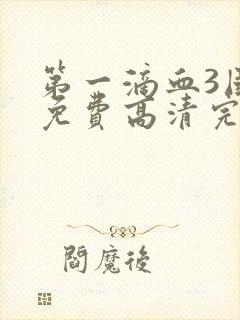 第一滴血3
免费高清完
閻魔後